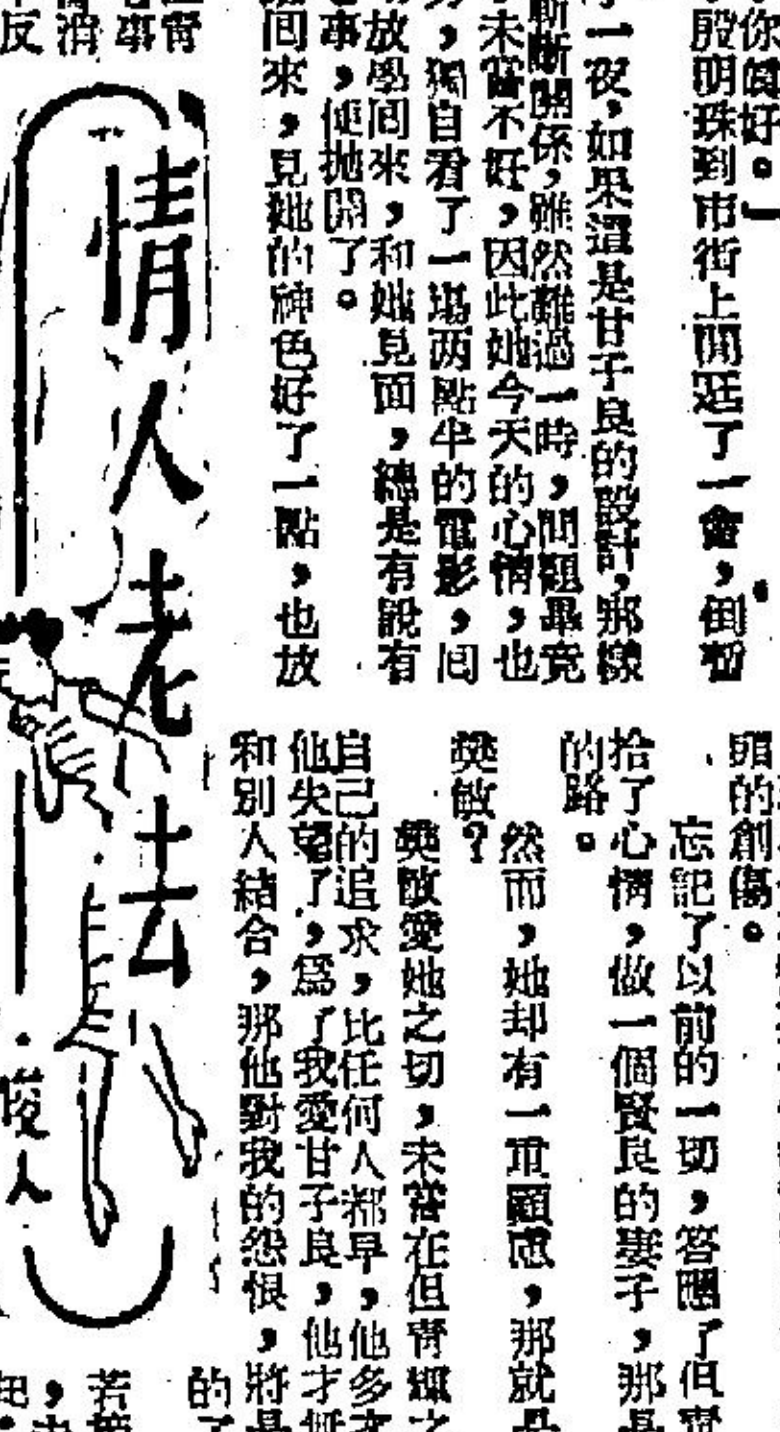 你說好。」
殷明珠到市街上閒逛了一會，倒暫
一夜，如果還是甘子良的設計，那樣
斷斷關係，雖然難過一時，問題畢竟
未嘗不好，因此她今天的心情，也
，獨自看了一場两點半的電影，回
放學回來，和她見面，總是有說有
事，便拋開了。
回來，見她的神色好了一點，也放
的創傷。
忘記了以前的一切，答應了但
拾了心情，做一個賢良的妻子，那是
的路。
然而，她却有一重顧慮，那就是
樊敏？
樊敏愛她之切，未嘗在但之
自己的追求，比任何人都早，他多
他失望了，爲了我愛甘子良，他才
和別人結合，那他對我的怨恨，將是
情人老去
·俊人
反
事
若
的